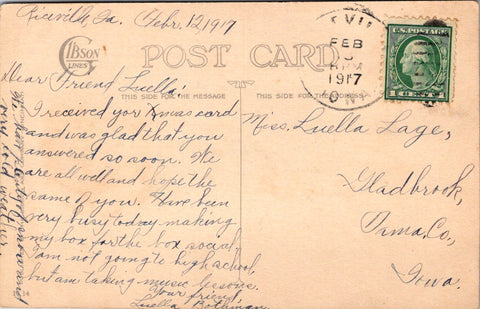 Riceville, Ia. Febr. 12 1917
GIBSON
LINES
POST CARD
THIS SIDE FOR THE MESSAGE
THIS SIDE FOR THE ADDRESS
FEB
1917
U.S. POSTAGE
1 CENT 1
Dear Friend Luella,
I received your Xmas card
and was glad that you
answered so soon. We
are all well and hope the
same of you. Have been
very busy today making
my box for the box social.
I am not going to high school,
but am taking music lessons.
Your friend,
Luella
Miss. Luella Lage,
Gladbrook,
Tama, Co.,
Iowa.